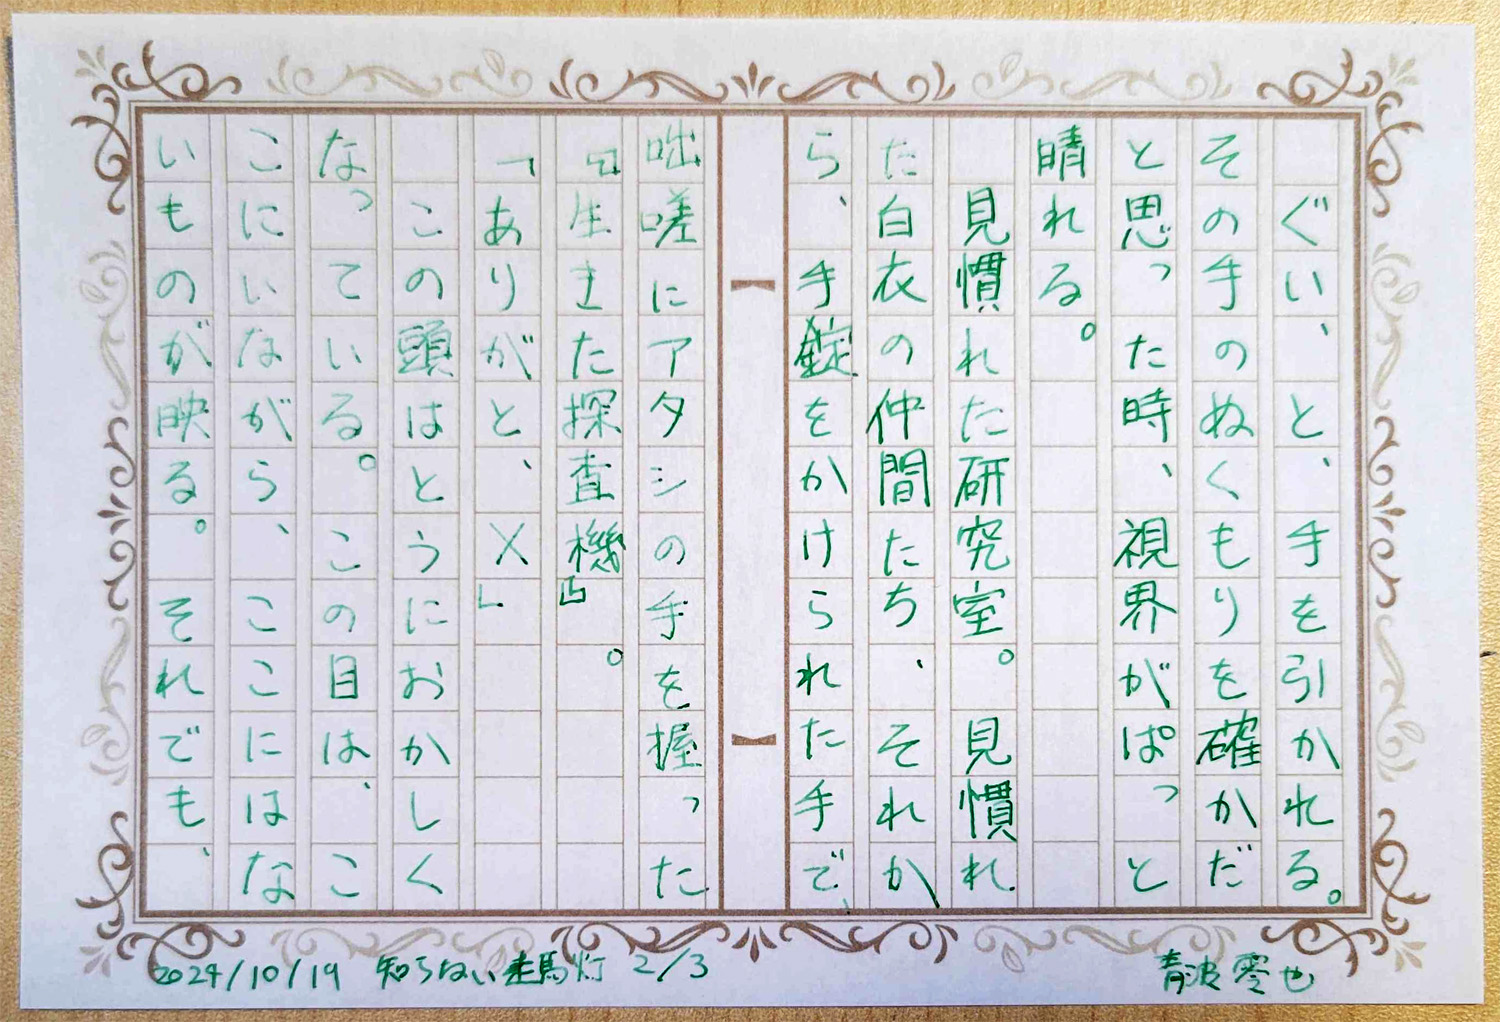 ぐい、と、手を引かれる。
その手のぬくもりを確かだ
と思った時、視界がぱっと
晴れる。
　見慣れた研究室。見慣れ
た白衣の仲間たち、それか
ら、手錠をかけられた手で、
咄嗟にアタシの手を握った
『生きた探査機』。
「ありがと、X」
　この頭はとうにおかしく
なっている。この目は、こ
こにいながら、ここにはな
いものが映る。それでも、
2024/10/19 知らない走馬灯 2/3
青波零也